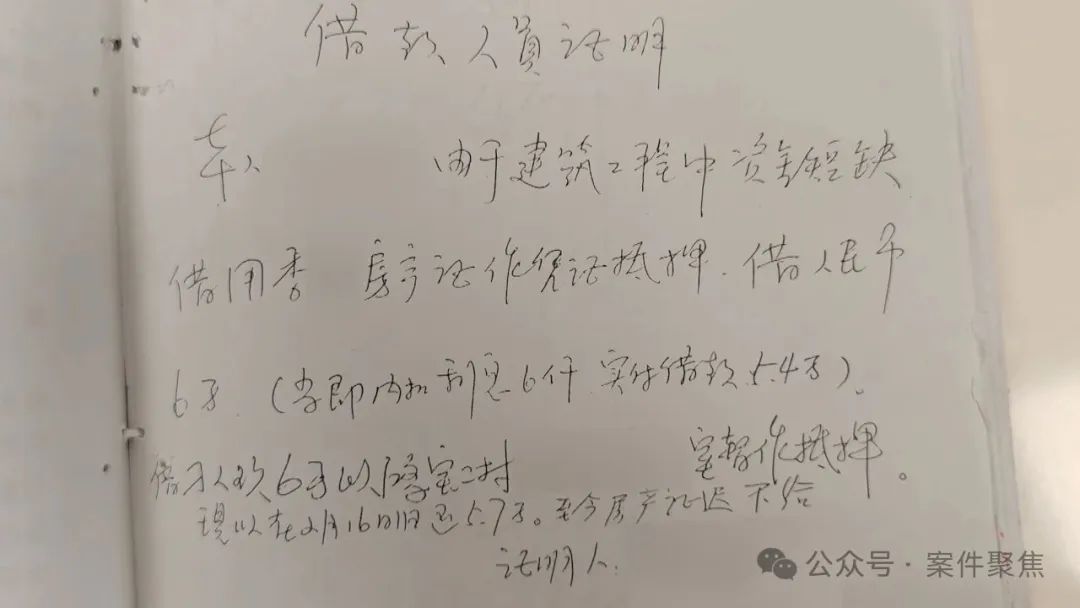 借款人员证明
本人 由于建筑工程中资金短缺
借用李 房产证作凭证抵押.借人民币
6万.(当即内扣利息6仟 实付借款5.4万).
借人欢6万以 宝二村 室暂作抵押。
现以在2月16日归还5.7万。至今房产证迟不给
证明人:
公众号·案件聚焦